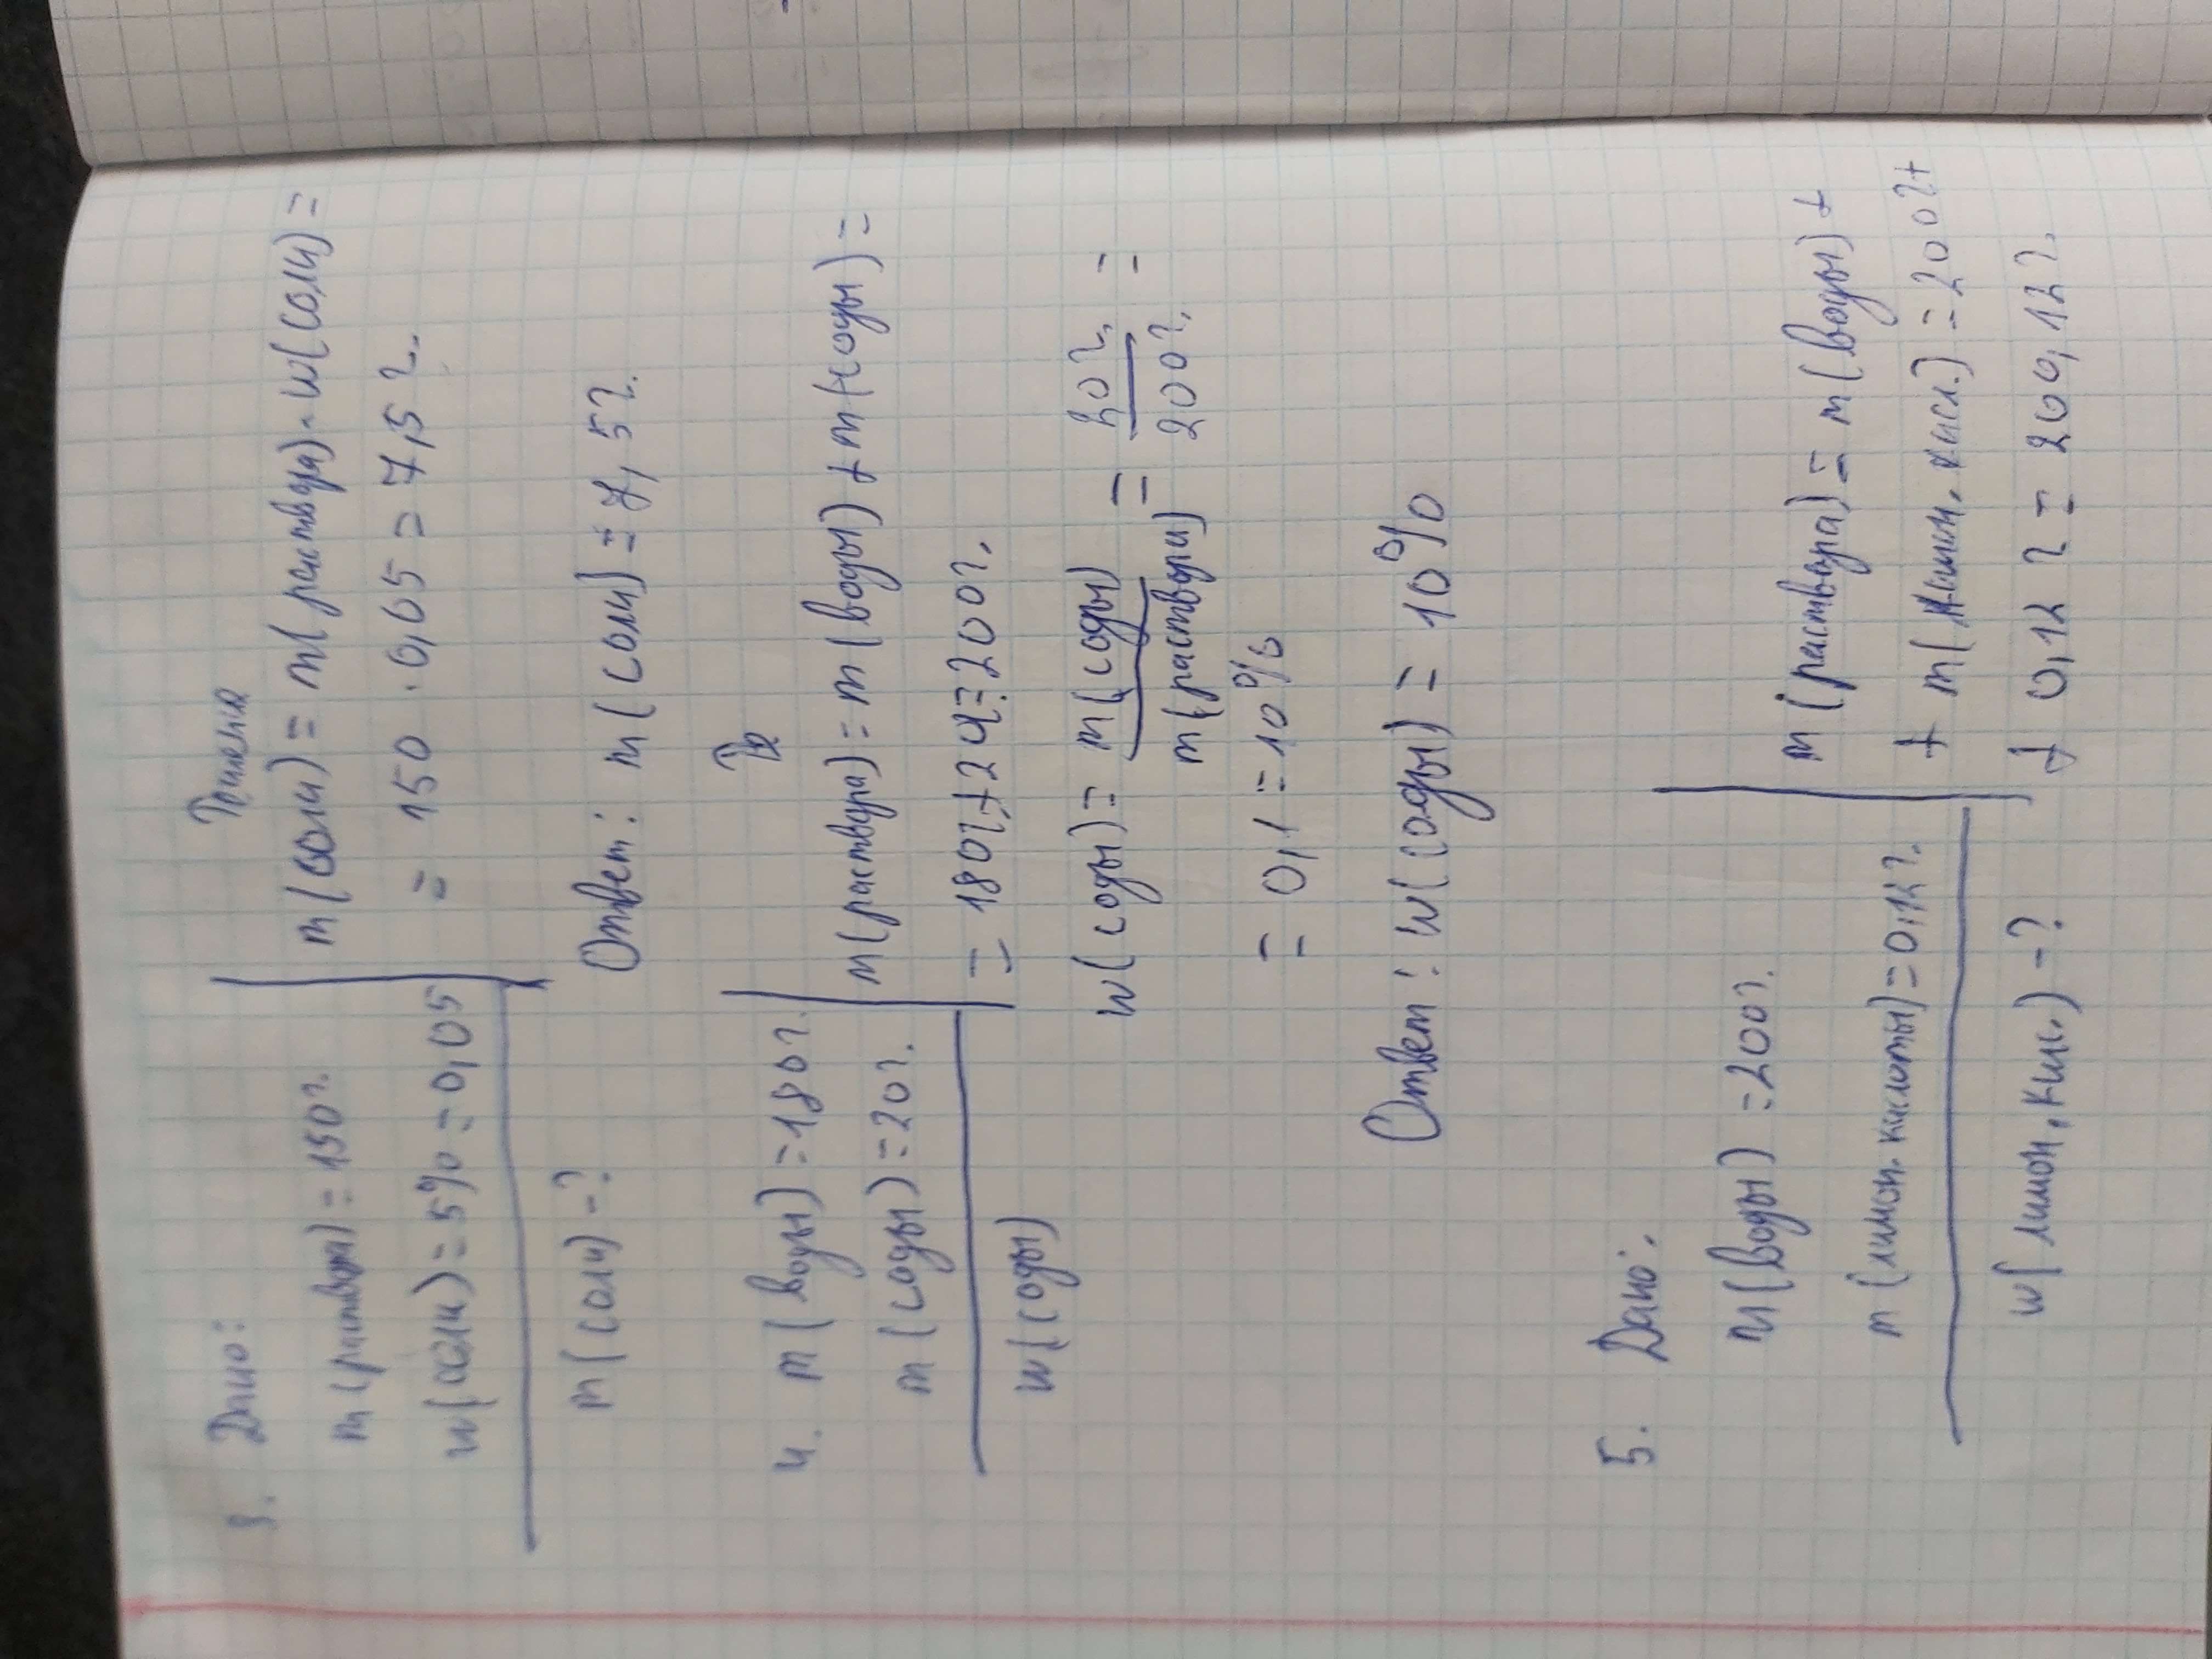 3. Дано:
Решение
m(раствора) = 150г.
w(соли) = 5% = 0,05
m(соли) - ?
m(соли) = m(раствора) · w(соли) =
= 150 · 0,05 = 7,5 г.
Ответ: m(соли) = 7,5г.
4. m(воды) = 180г.
m(соды) = 20г.
w(соды)
Ре
m(раствора) = m(воды) + m(соды) =
= 180г. + 20г. = 200г.
w(соды) = m(соды) / m(раствора) = 20г. / 200г. =
= 0,1 = 10%
Ответ: w(соды) = 10%
5. Дано:
m(воды) = 200г.
m(лимон. кислоты) = 0,12г.
w(лимон. кис.) - ?
m(раствора) = m(воды) +
+ m(лимон. кисл.) = 200г +
+ 0,12 г = 200,12г.